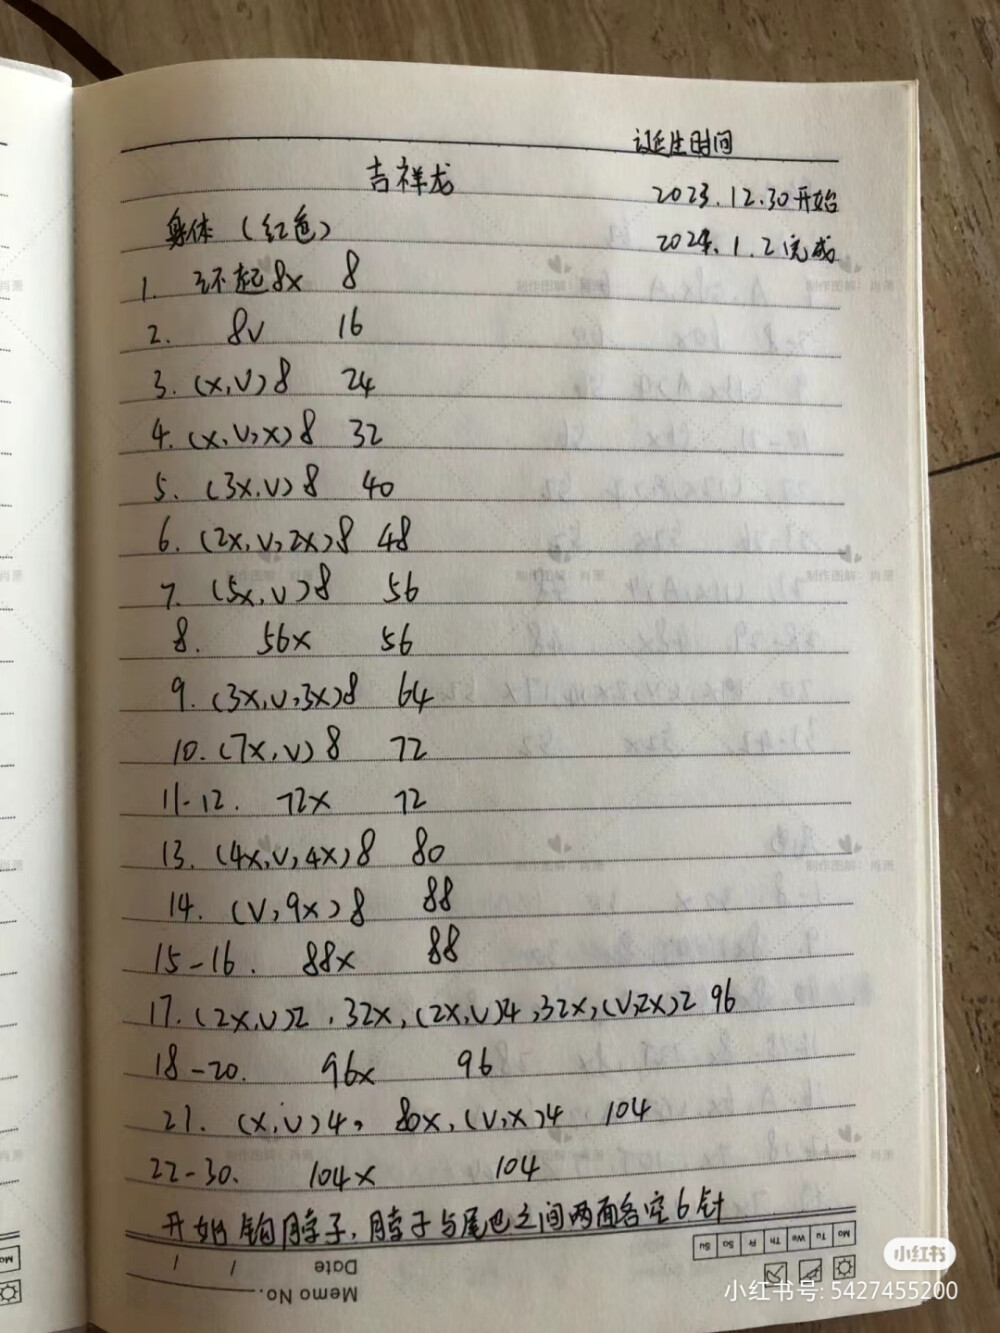 诞生时间
吉祥龙
2023.12.30开始
身体（红色）
2024.1.2完成
1. 环起8x 8
2. 8v 16
3. (x,v)8 24
4. (x,v,x)8 32
5. (3x,v)8 40
6. (2x,v,2x)8 48
7. (5x,v)8 56
8. 56x 56
9. (3x,v,3x)8 64
10. (7x,v)8 72
11-12. 72x 72
13. (4x,v,4x)8 80
14. (v,9x)8 88
15-16. 88x 88
17. (2x,v)2,32x,(2x,v)4,32x,(v,2x)2 96
18-20. 96x 96
21. (x,v)4, 80x,(v,x)4 104
22-30. 104x 104
开始钩脖子,脖子与尾巴之间两面各空6针
Mo Tu We Th Fr Sa Su
Memo No.
Date / /
制作图解：肖萧
小红书
小红书号: 5427455200